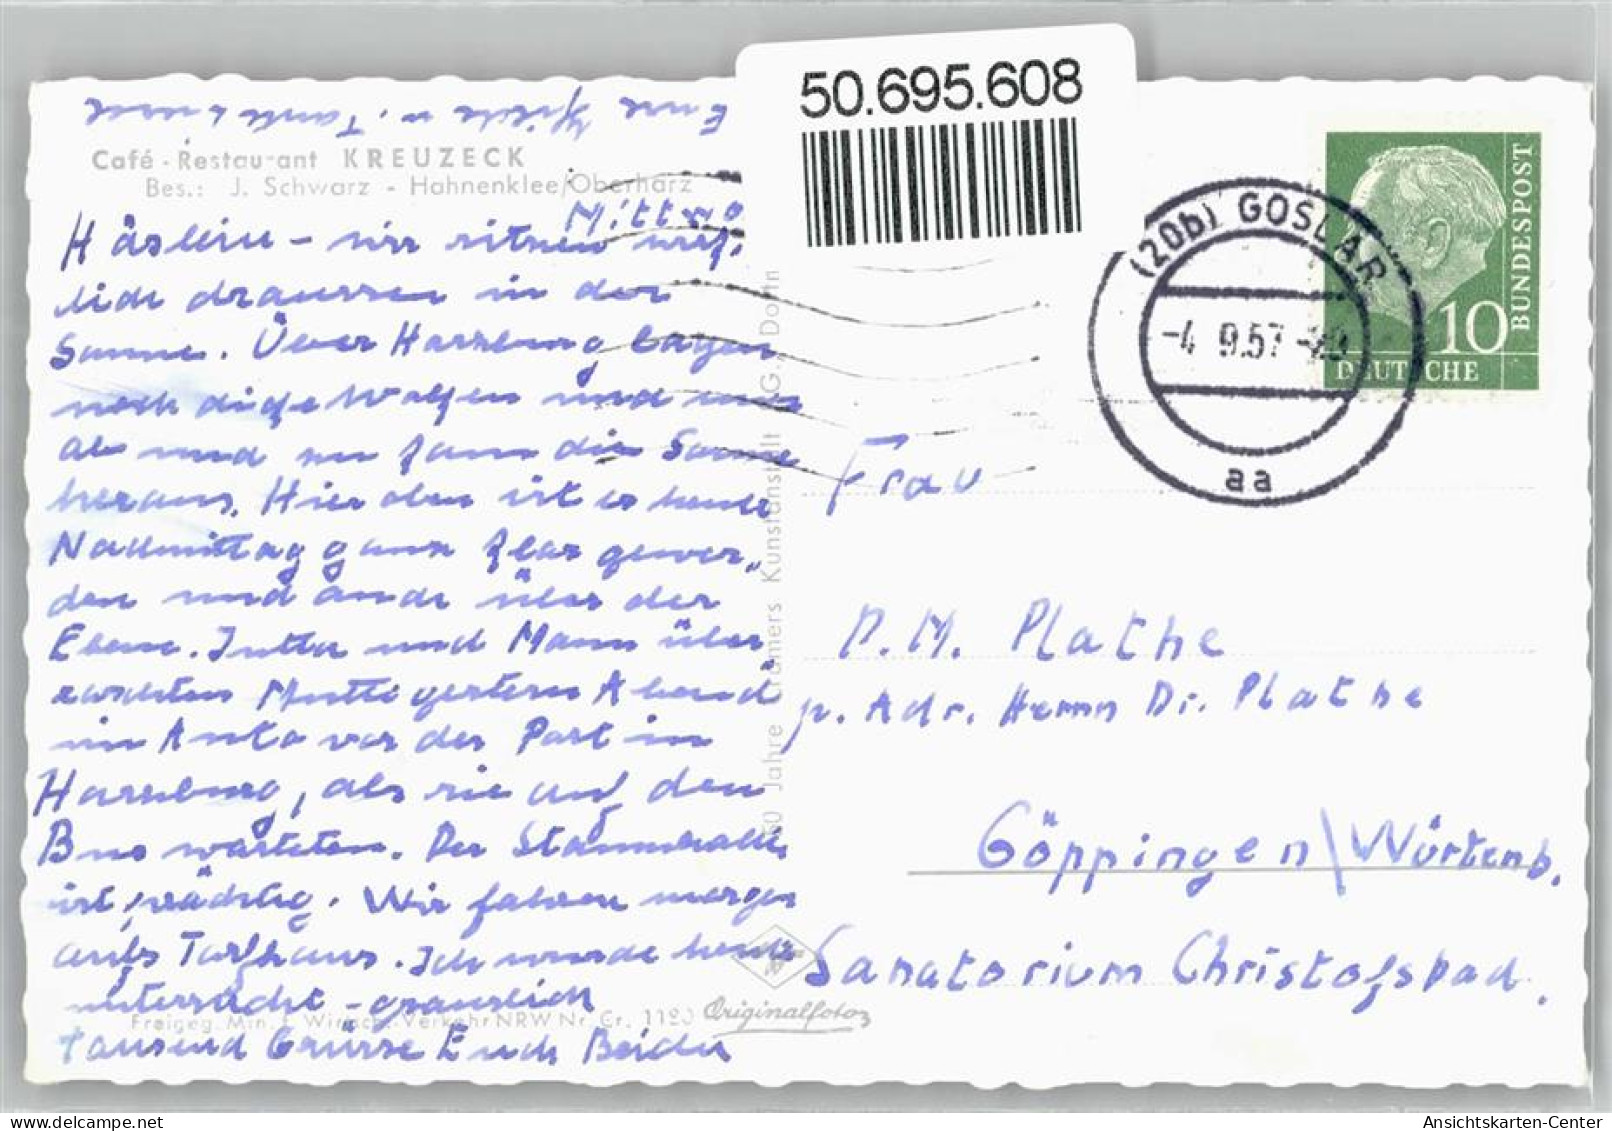 50.695.608
Eure Hilde u. Tante
Café - Restaurant KREUZECK
Bes.: J. Schwarz - Hahnenklee/Oberharz
Mittwo
Häslein - wir sitzen
lich draussen in der
Sonne. Über Harzburg lagen
noch dicke Wolken und
ab und zu kam die Sonne
heraus. Hier oben ist es heute
Nachmittag ganz klar gewor-
den und auch über der
Ebene. Jutta und Mann über
raschten Mutti gestern Abend
im Auto vor der Post in
Harzburg, als sie auf den
Bus warteten. Der
ist prächtig. Wir fahren morgen
aufs Torfhaus. Ich wurde heute
untersucht - grauslich
Tausend Grüsse Euch Beiden
Freigeg. Min. f. Wirtsch.-Verkehr NRW Nr. Cr. 1120
Originalfoto
Jahre Cramers Kunstanstalt KG., Dortm
(20b) GOSLAR
-4.9.57
aa
10
DEUTSCHE
BUNDESPOST
Frau
D. M. Plathe
p. Adr. Herrn Dr. Plathe
Göppingen/Württemb.
Sanatorium Christofsbad.
Ansichtskarten-Center